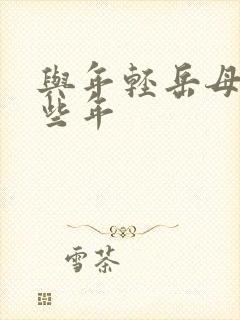 與年輕岳母
些年
雪茶